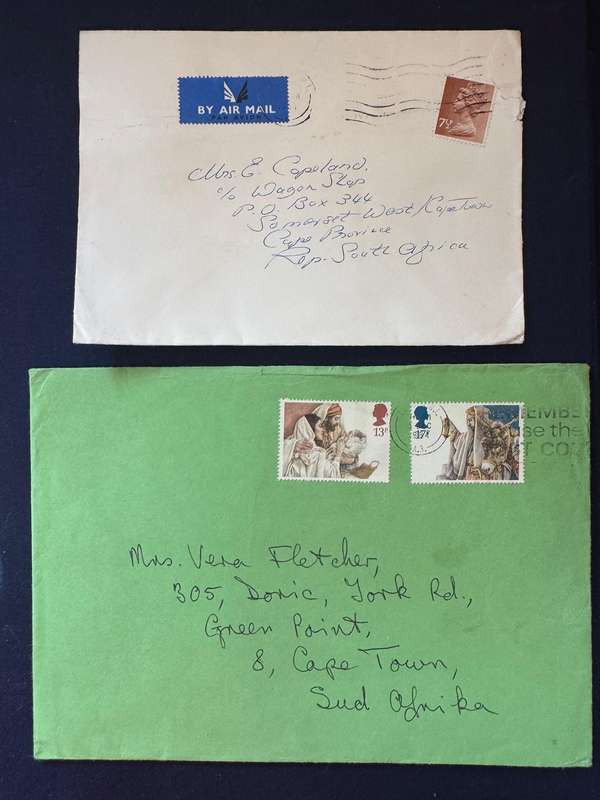 BY AIR MAIL
PAR AVION
7½P
Mrs E. Copeland,
c/o Wagon Shop
P.O. Box 344
Somerset-West / Cape Town
Cape Province
Rep. South Africa
13P
17P
EMBE
use the
T CO
Mrs. Vera Fletcher,
305, Doric, York Rd.,
Green Point,
8, Cape Town,
Sud Afrika